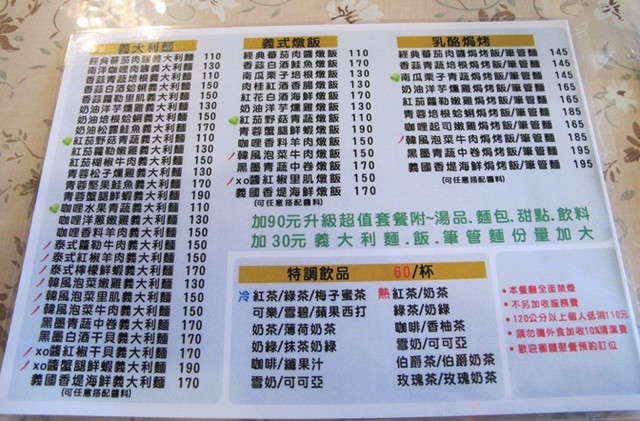 義大利麵
經典蕃茄肉醬義大利麵 110
南洋咖哩肉醬義大利麵 130
香蒜青蔬培根義大利麵 110
香蒜白酒蛤蜊義大利麵 165
香蒜蘿勒里肌義大利麵 150
奶油洋芋燻雞義大利麵 130
奶油培根蛤蜊義大利麵 165
奶油松露鮭魚義大利麵 170
紅茄野菇青蔬義大利麵 110
紅茄蘿勒嫩雞義大利麵 130
紅茄椒椒牛肉義大利麵 150
青蓉松子燻雞義大利麵 130
青蓉堅果鮭魚義大利麵 170
青蓉蟹腿鮮蝦義大利麵 190
咖哩水果青蔬義大利麵 110
咖哩洋蔥嫩雞義大利麵 130
咖哩香料羊肉義大利麵 150
泰式蘿勒牛肉義大利麵 150
泰式紅椒羊肉義大利麵 150
泰式檸檬鮮蝦義大利麵 170
韓風泡菜嫩雞義大利麵 130
韓風泡菜里肌義大利麵 150
韓風泡菜牛肉義大利麵 150
黑墨青蔬中卷義大利麵 170
黑墨白酒干貝義大利麵 170
xo醬紅椒干貝義大利麵 170
xo醬蟹腿鮮蝦義大利麵 190
義國香堤海鮮義大利麵 170
(可任意搭配醬料)
義式燉飯
經典蕃茄肉醬燉飯 110
香蒜白酒鮭魚燉飯 170
南瓜栗子培根燉飯 130
肉桂紅酒香腸燉飯 130
紅花白酒海鮮燉飯 170
奶油洋芋燻雞燉飯 130
紅茄野菇青蔬燉飯 110
青蓉蟹腿鮮蝦燉飯 190
咖哩香料羊肉燉飯 150
韓風泡菜牛肉燉飯 150
黑墨青蔬中卷燉飯 170
xo醬紅椒里肌燉飯 150
義國香堤海鮮燉飯 170
(可任意搭配醬料)
乳酪焗烤
經典蕃茄肉醬焗烤飯/筆管麵 145
香蒜青蔬培根焗烤飯/筆管麵 145
南瓜栗子青蔬焗烤飯/筆管麵 145
奶油洋芋燻雞焗烤飯/筆管麵 165
紅茄蘿勒嫩雞焗烤飯/筆管麵 165
青蓉培根蛤蜊焗烤飯/筆管麵 195
咖哩起司嫩雞焗烤飯/筆管麵 165
韓風泡菜牛肉焗烤飯/筆管麵 185
黑墨青蔬中卷焗烤飯/筆管麵 195
義國香堤海鮮焗烤飯/筆管麵 195
(可任意搭配醬料)
加90元升級超值套餐附~湯品.麵包.甜點.飲料
加30元義大利麵.飯.筆管麵份量加大
特調飲品 60/杯
冷 紅茶/綠茶/梅子蜜茶
可樂/雪碧/蘋果西打
奶茶/薄荷奶茶
奶綠/抹茶奶綠
咖啡/纖果汁
雪奶/可可亞
熱 紅茶/奶茶
綠茶/奶綠
咖啡/香柚茶
雪奶/可可亞
伯爵茶/伯爵奶茶
玫瑰茶/玫瑰奶茶
*本餐廳全面禁煙
*不另加收服務費
*120公分以上每人低消110元
*請勿攜外食加收10%清潔費
*歡迎團體聚餐預約訂位